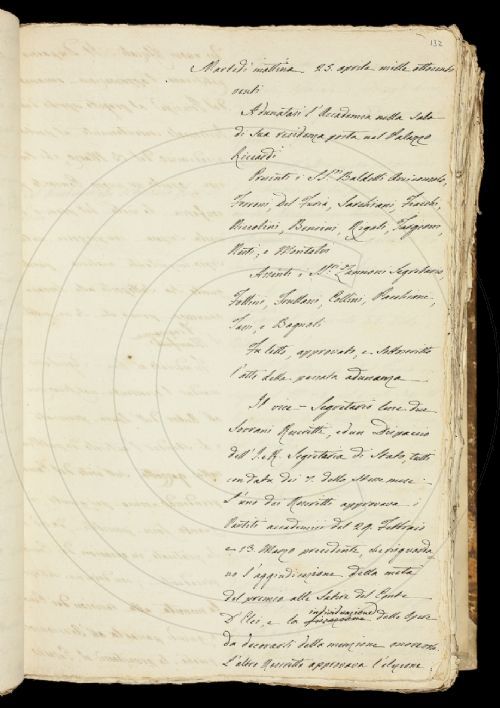 132
Martedì mattina 25. aprile mille ottocento
venti
Adunatasi l'Accademia nella Sala
di Sua residenza posta nel Palazzo
Riccardi
Presenti i SS.ri Baldelli Arciconsolo,
Ferroni, Del Furia, Sarchiani, Fiacchi,
Niccolini, Bencini, Rigoli, Targioni,
Nesti, e Montalvi
Assenti i SS.ri Zannoni Segretario,
Follini, Frullani, Collini, Paolsani,
Tassi, e Bagnoli
Fu letto, approvato, e sottoscritto
l'atto della passata adunanza
Il vice-Segretario lesse due
Sovrani Rescritti, e un Dispaccio
dell'I. e R. Segreteria di Stato, tutti
con data dei 7. dello stesso mese.
L'uno dei Rescritti approvava i
Partiti accademici del 29. Febbraio
e 13. Marzo precedente, che riguarda-
no l'aggiudicazione della metà
del premio alle Satire del Conte
D'Elci, e la individuazione delle Opere
da decorarsi della menzione onorevole.
L'altro Rescritto approvava l'elezione